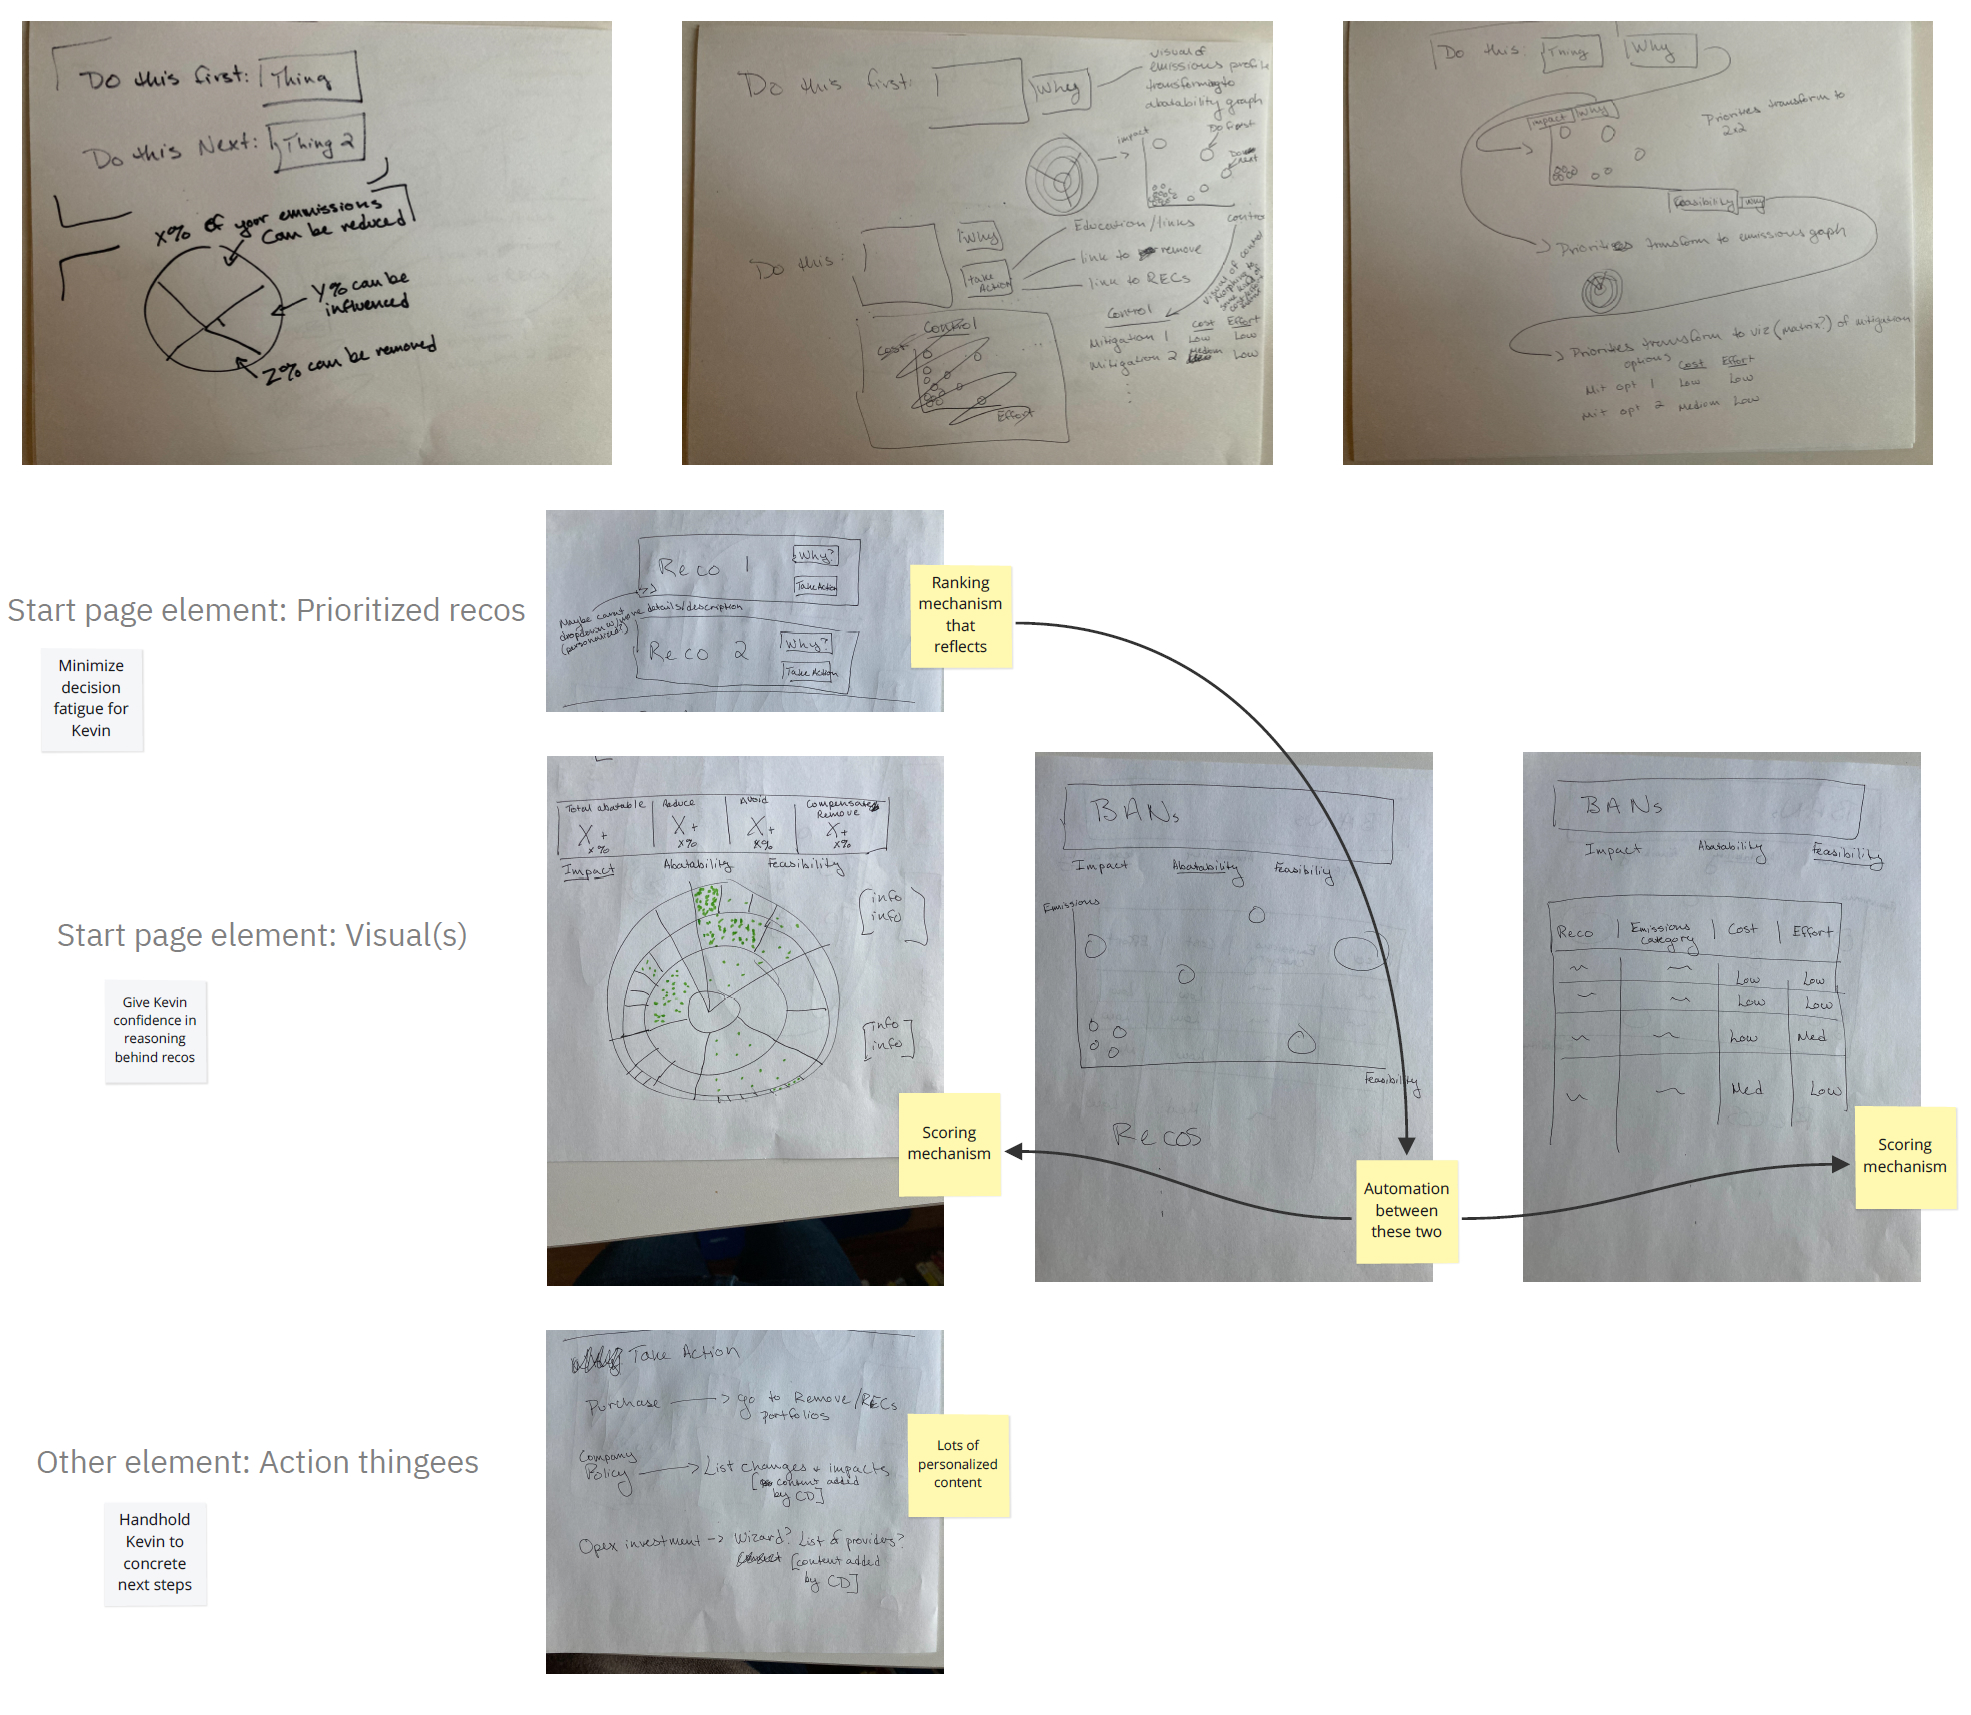 Do this first: Thing
Do this Next: Thing 2
X% of your emmissions
can be reduced
Y% can be
influenced
Z% can be removed
Do this first:
Why
visual of
emissions profile
transforming to
abatability graph
impact
Do first
Do next
control
Do this:
Why
take
Action
Education/links
link to remove
link to RECs
Control
Cost
Effort
Control
Cost
Effort
Mitigation 1
Low
Low
Mitigation 2
Medium
Low
Do this:
Thing
Why
impact
Why
Priorities transform to
2x2
Feasibility
Why
Priorities transform to emissions graph
Priorities transform to viz (matrix?) of mitigation
options
Cost
Effort
Mit opt 1
Low
Low
Mit opt 2
Medium
Low
Start page element: Prioritized recos
Minimize
decision
fatigue for
Kevin
Reco 1
Why?
Take Action
Maybe carat
dropdown w/more details/description
(personalized?)
Reco 2
Why?
Take Action
Ranking
mechanism
that
reflects
Start page element: Visual(s)
Give Kevin
confidence in
reasoning
behind recos
Total abatable
Reduce
Avoid
Compensate
Remove
X+
X+
X+
X+
x%
x%
x%
x%
Impact
Abatability
Feasibility
info
info
info
info
Scoring
mechanism
BANs
Impact
Abatability
Feasibility
Emissions
Feasibility
Recos
Automation
between
these two
BANs
Impact
Abatability
Feasibility
Reco
Emissions
category
Cost
Effort
Low
Low
Low
Low
Low
Med
Med
Low
Scoring
mechanism
Other element: Action thingees
Handhold
Kevin to
concrete
next steps
Take Action
Purchase
go to Remove/RECs
portfolios
Company
Policy
List changes + impacts
[content added
by CD]
Opex investment
Wizard? List of providers?
[content added
by CD]
Lots of
personalized
content